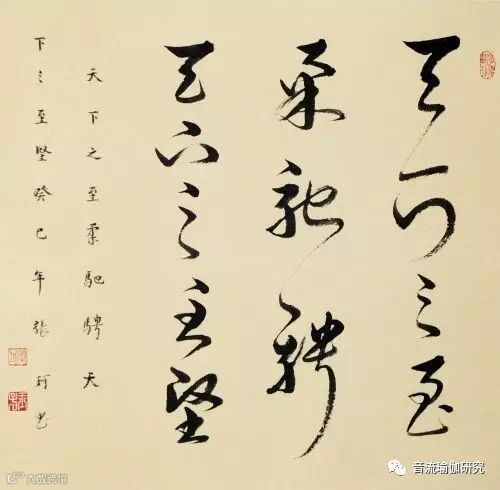 天下之至
柔馳騁
天下之至堅
天下之至柔馳騁天
下之至堅癸巳年張書
音流瑜伽研究